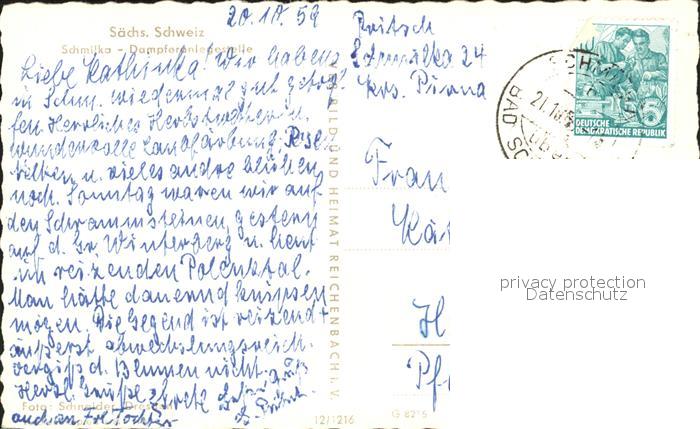 20.10.59
Sächs. Schweiz
Schmilka - Dampferanlegestelle
Pritsch
Schmilka 24
Krs. Pirna
Liebe Kathinka! Wir haben
in Schm. wiedermal gut getrof-
fen. Herrliches Herbstwetter u.
wundervolle Laubfärbung.
nelken u. vieles andre blühen
noch. Sonntag waren wir auf
den Schrammsteinen, gestern
auf d. Gr. Winterberg u. heut
im reizenden Polenztal.
Man hätte dauernd knipsen
mögen. Die Gegend ist reizend +
äußerst abwechslungsreich.
Vergiß d. Blumen nicht.
Herzl. Grüße
auch an Tochter
Foto: Schneider, Dresden
BILD UND HEIMAT REICHENBACH i. V.
12/1216
G 8215
Frau
Kä
H
Pf
DEUTSCHE
DEMOKRATISCHE REPUBLIK
5
SCHMILKA
BAD SC
privacy protection
Datenschutz